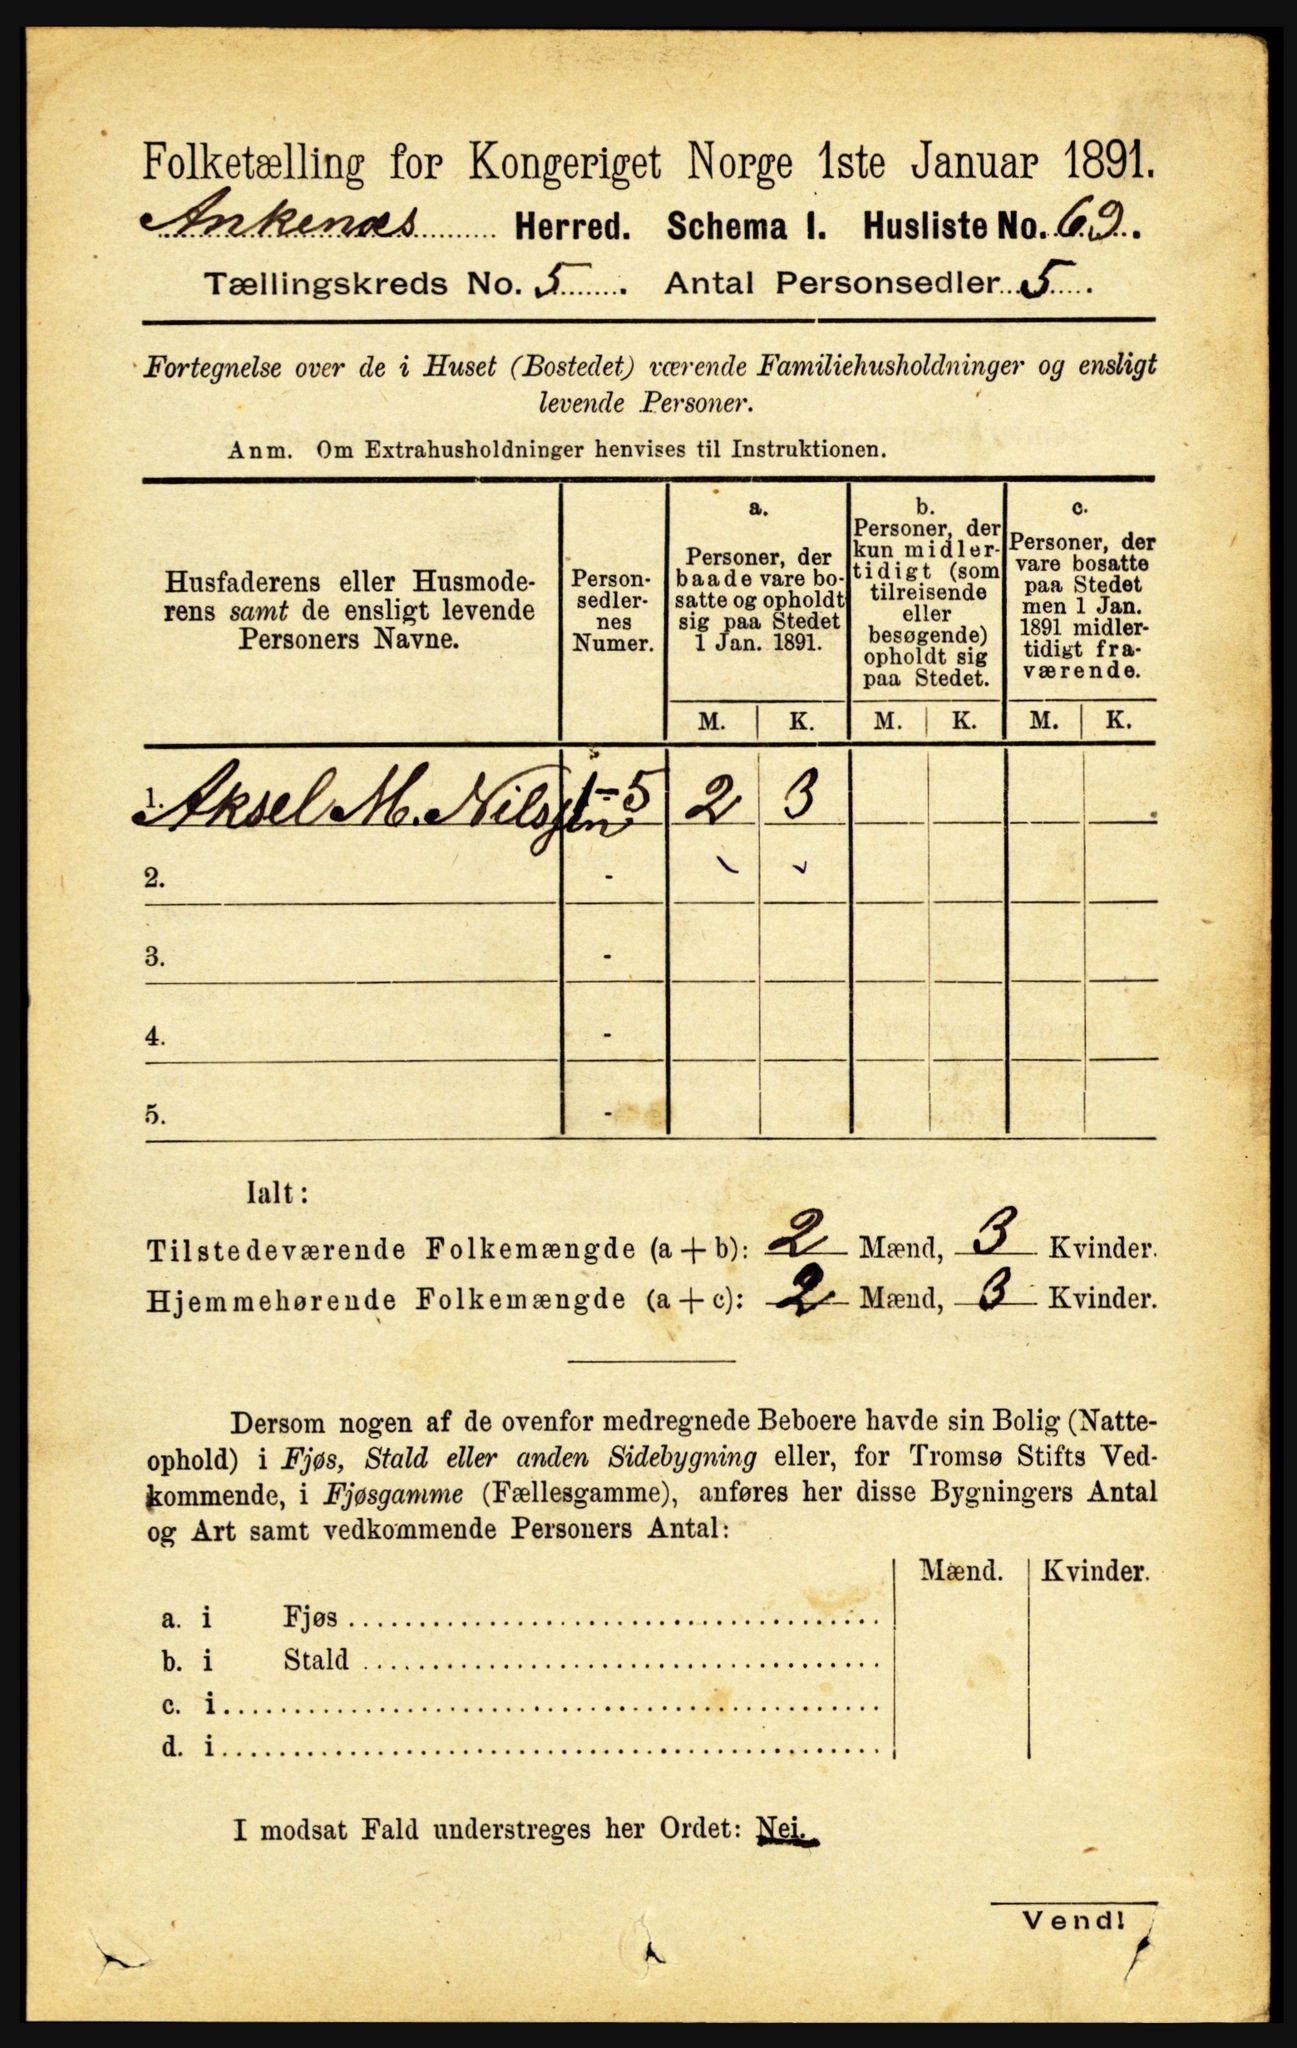 Folketælling for Kongeriget Norge 1ste Januar 1891.
Ankenæs Herred. Schema I. Husliste No. 69.
Tællingskreds No. 5. Antal Personsedler 5.
Fortegnelse over de i Huset (Bostedet) værende Familiehusholdninger og ensligt
levende Personer.
Anm. Om Extrahusholdninger henvises til Instruktionen.
Husfaderens eller Husmode-
rens samt de ensligt levende
Personers Navne.
Person-
sedler-
nes
Numer.
a.
Personer, der
baade vare bo-
satte og opholdt
sig paa Stedet
1 Jan. 1891.
b.
Personer, der
kun midler-
tidigt (som
tilreisende
eller
besøgende)
opholdt sig
paa Stedet.
c.
Personer, der
vare bosatte
paa Stedet
men 1 Jan.
1891 midler-
tidigt fra-
værende.
M. K. M. K. M. K.
1. Aksel M. Nilssen 1-5 2 3
2. -
3. -
4. -
5. -
Ialt:
Tilstedeværende Folkemængde (a + b): 2 Mænd, 3 Kvinder.
Hjemmehørende Folkemængde (a + c): 2 Mænd, 3 Kvinder.
Dersom nogen af de ovenfor medregnede Beboere havde sin Bolig (Natte-
ophold) i Fjøs, Stald eller anden Sidebygning eller, for Tromsø Stifts Ved-
kommende, i Fjøsgamme (Fællesgamme), anføres her disse Bygningers Antal
og Art samt vedkommende Personers Antal:
Mænd. Kvinder.
a. i Fjøs
b. i Stald
c. i
d. i
I modsat Fald understreges her Ordet: Nei.
Vend!